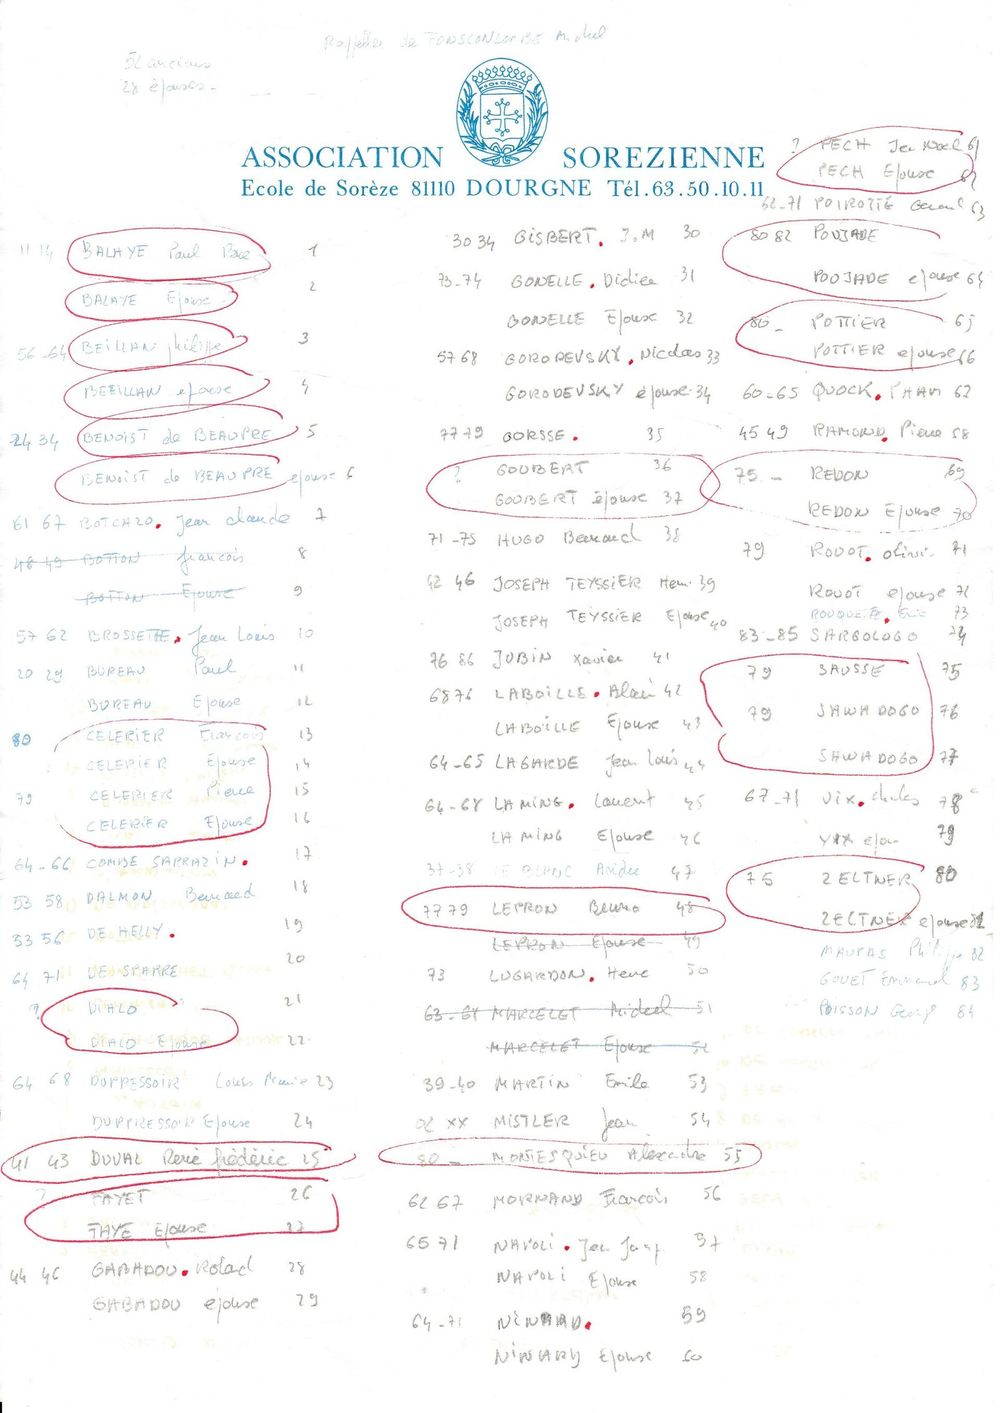 Rappeller de FONSCOLOMBE Michel
52 anciens
28 épouses -
ASSOCIATION SOREZIENNE
Ecole de Sorèze 81110 DOURGNE Tél. 63.50.10.11
11 14 BALAYE Paul 1
BALAYE Epouse 2
56-64 BEILLAN philippe 3
BEEILLAN epouse 4
24 34 BENOIST de BEAUPRE 5
BENOIST de BEAUPRE epouse 6
61 67 BOTCAZO. Jean claude 7
48 49 BOTTON françois 8
BOTTON Epouse 9
57 62 BROSSETTE. Jean Louis 10
20 29 BUREAU Paul 11
BUREAU Epouse 12
80 CELERIER François 13
CELERIER Epouse 14
79 CELERIER Pierre 15
CELERIER Epouse 16
64-66 COMBE SARRAZIN. 17
53 58 DALMON Bernard 18
53 56 DE HELLY. 19
64 71 DE SPARRE 20
? DIALO 21
DIALO Epouse 22
64 68 DUPRESSOIR Louis Marie 23
DUPRESSOIR Epouse 24
41 43 DUVAL René frédéric 25
? FAYET 26
FAYE Epouse 27
44 46 GABADOU. Roland 28
GABADOU epouse 29
30 34 GISBERT. J.M 30
73-74 GONELLE. Didier 31
GONELLE Epouse 32
57 68 GORODEVSKY. Nicolas 33
GORODEVSKY épouse 34
77 79 GORSSE. 35
? GOUBERT 36
GOUBERT épouse 37
71-75 HUGO Bernard 38
42 46 JOSEPH TEYSSIER Henri 39
JOSEPH TEYSSIER Epouse 40
76 86 JUBIN Xavier 41
68 76 LABOILLE. Alain 42
LABOILLE Epouse 43
64-65 LAGARDE Jean Louis 44
64-68 LAMING. Laurent 45
LAMING Epouse 46
37-38 LE BLANC André 47
77 79 LEPRON Bruno 48
LEPRON Epouse 49
73 LUGARDON. Hervé 50
63-64 MARCELET Michel 51
MARCELET Epouse 52
39-40 MARTIN Emile 53
02 XX MISTLER Jean 54
80 - MONTESQUIEU Alexandre 55
62 67 MORNAND François 56
65 71 NAPOLI. Jean Jacq 57
NAPOLI Epouse 58
64-71 NINARD. 59
NINARY Epouse 60
? PECH Jean Noel 61
PECH Epouse 62
62-71 POIROTTE Gerard 63
80 82 POUJADE
POUJADE epouse 64
80 - POTTIER 65
POTTIER epouse 66
60-65 QUOCK. PHAM 62
45 49 RAMOND. Pierre 58
75 - REDON 69
REDON Epouse 70
79 ROUOT. olivi. 71
ROUOT epouse 72
ROUQUETTE. Eric 73
83-85 SARGOLOGO 74
79 SAUSSE 75
79 SAWADOGO 76
SAWADOGO 77
67-71 VIX. charles 78
VIX epou 79
75 ZELTNER 80
ZELTNER epouse 81
MAUPAS Philippe 82
GOUET Emmanuel 83
POISSON Georg 84